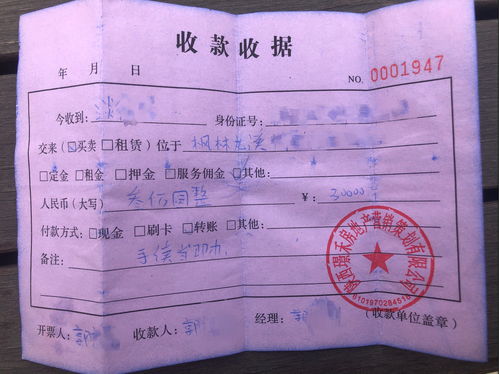 收款收据
年 月 日
NO. 0001947
今收到: 身份证号:
交来（☑买卖 □租赁）位于 枫林
□定金 □租金 □押金 □服务佣金 □其他:
人民币（大写） 叁 圆整 ¥: 30000
付款方式: □现金 □刷卡 □转账 □其他:
备注:
陕西璟禾房地产营销策划有限公司
6101970284516
开票人: 郭 收款人: 郭 经理: 郭 （收款单位盖章）